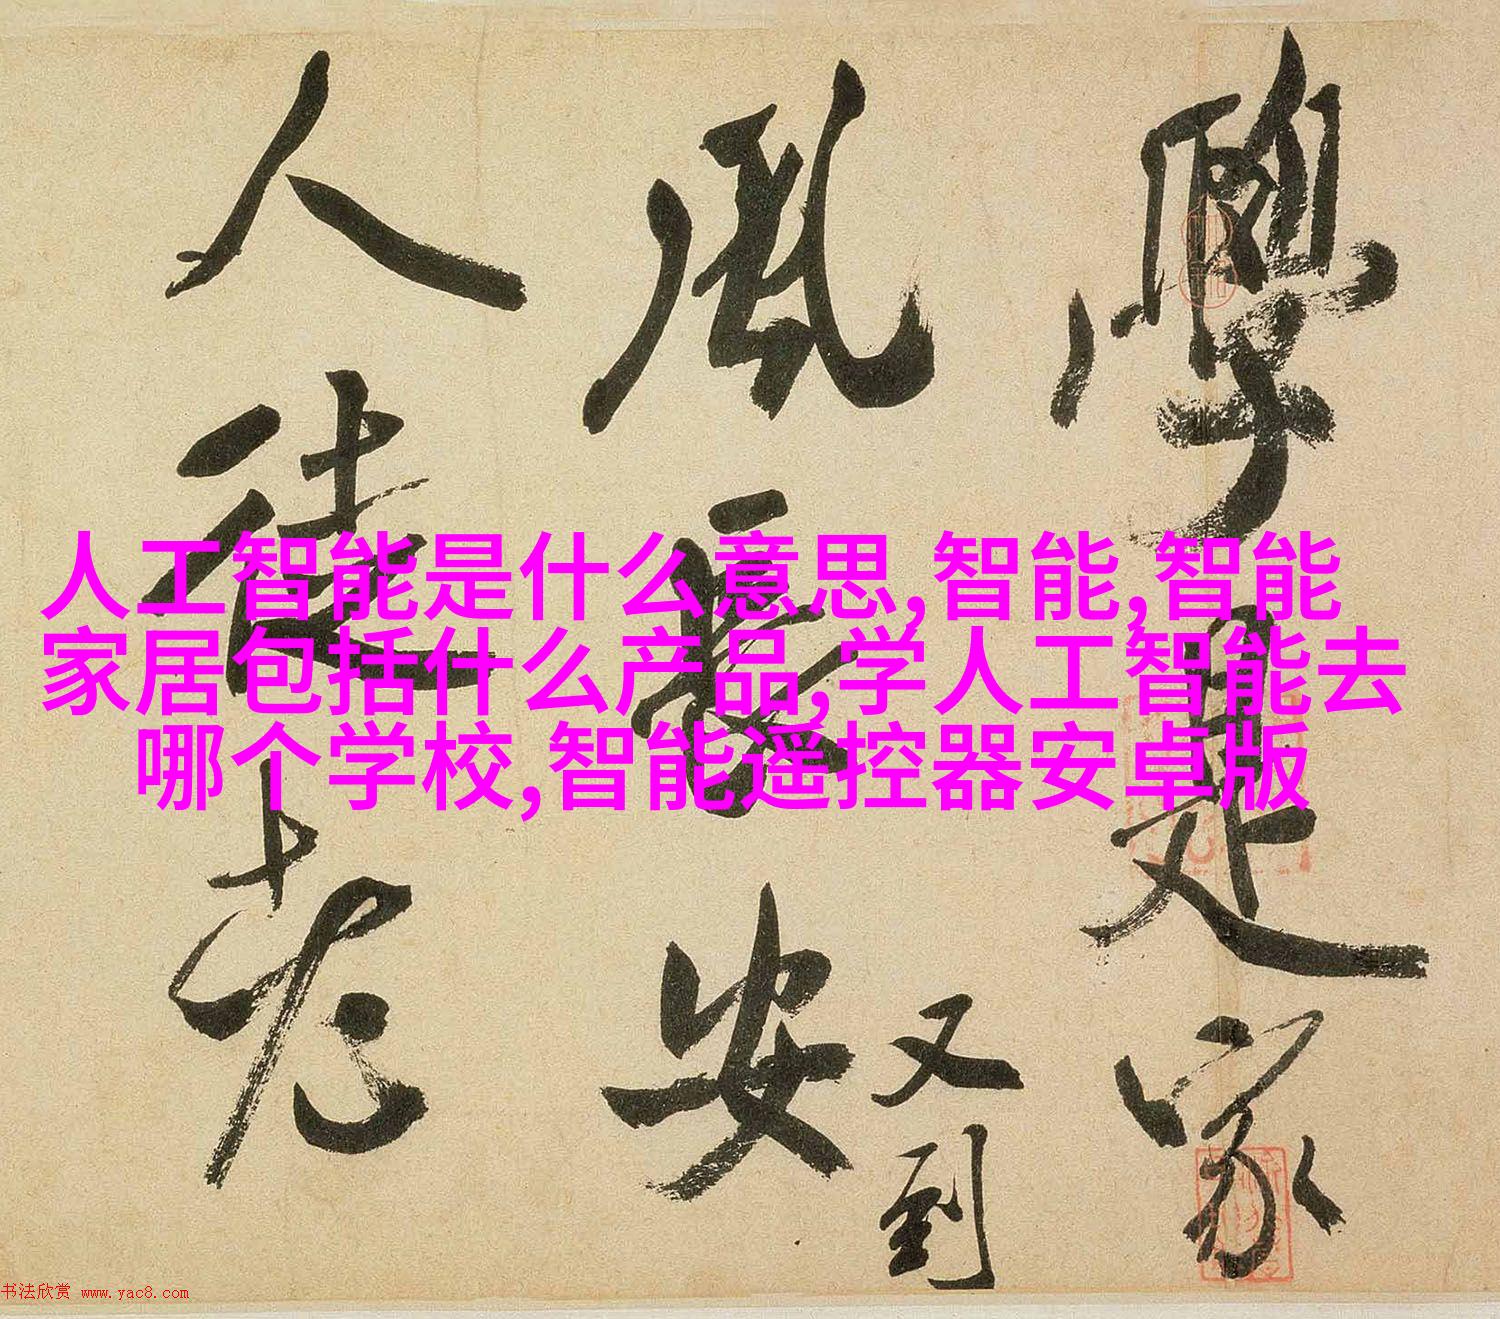 人工智能是什么意思,智能,智能
家居包括什么产品,学人工智能去
哪个学校,智能遥控器安卓版
學是家
風長安
又到
人徒老
书法欣赏 www.yac8.com